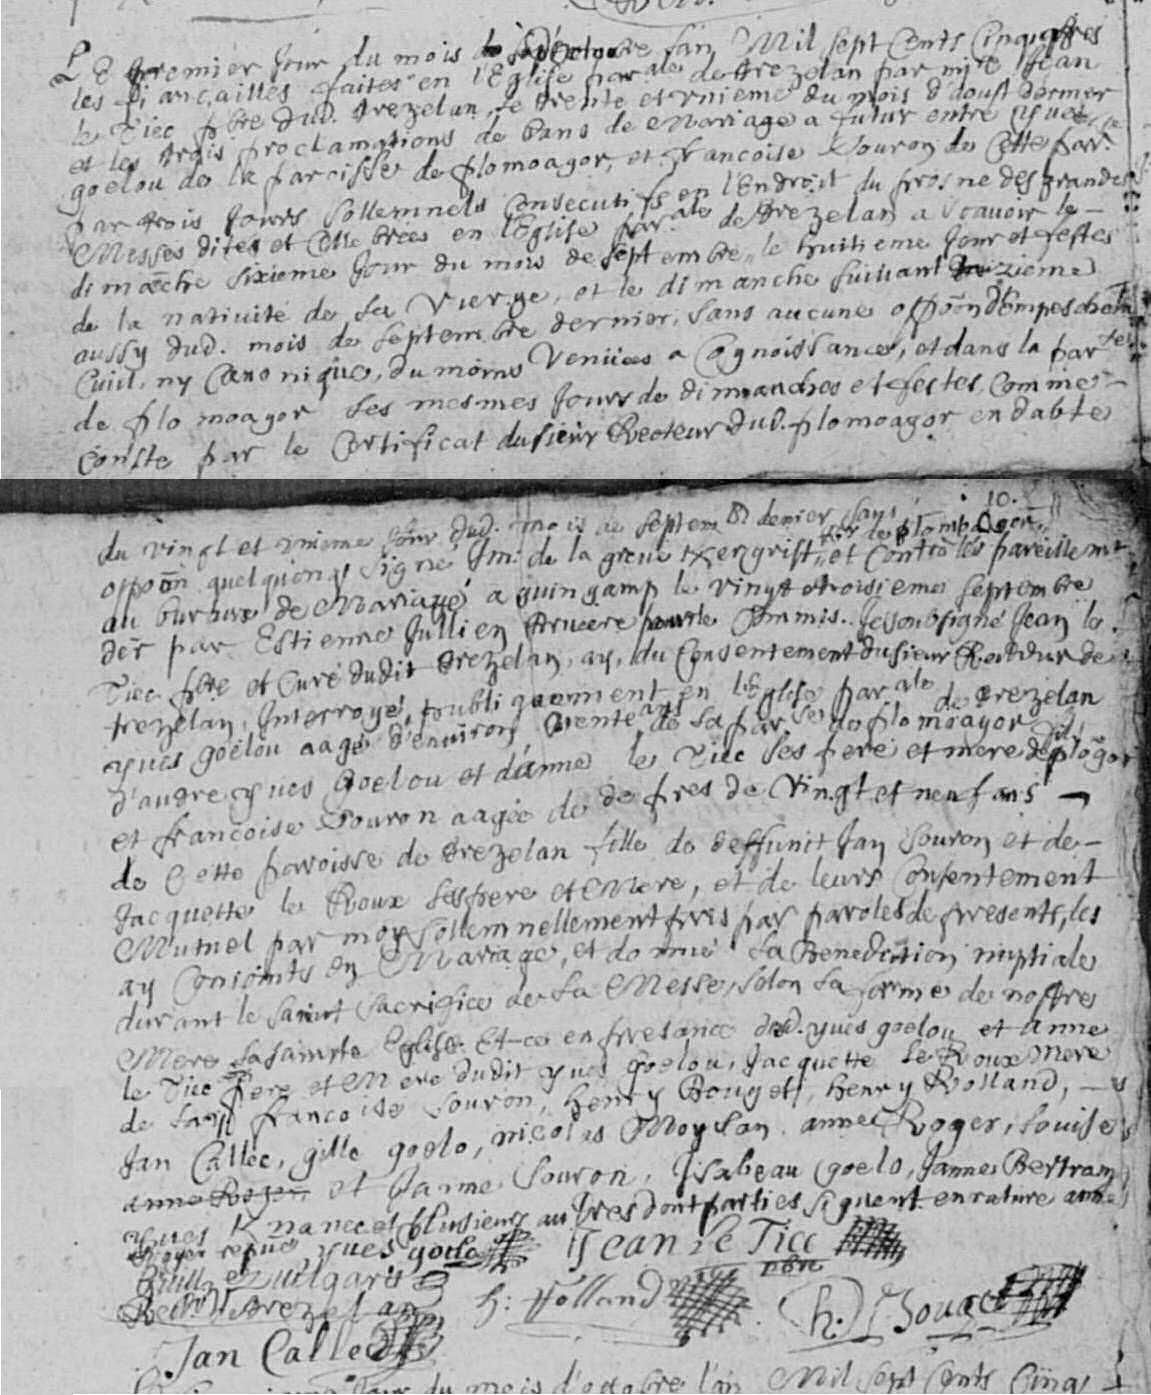 Le premier Jour du mois d'octobre lan Mil sept Cents Cinq apres
les fiançailles faites en l'Eglise par.ale de trezelan par mi.re Jean
le Tiec p.bre dud. trezelan, le trente et vnieme du mois d'aoust dernier
et les trois proclamations de bans de Mariage a futur entre yues
goelou de la paroisse de plomoagor, et francoise Souron de Cette par.
par trois Jours sollemnels Consecutifs en l'Endroit du prosne des grandes
Messes dites et Cellebrées en l'Eglise par.ale de trezelan a Scauoir le
dimanche sixieme Jour du mois de septembre, le huitieme Jour et festes
de la natiuité de La Vierge, et le dimanche suiuant treizieme
aussy dud. mois de septembre dernier, sans aucune oppoõn d'Empeschem.t
Ciuil, ny Canonique, du moins Venües a Cognoissance, et dans la par.sse
de plomoagor les mesmes Jours de dimanches et festes, Comme
Conste par le Certificat du sieur Recteur dud. plomoagor en dabte
10.
du vingt et vnieme Jour dud. mois de septem.bre dernier sans
oppoõn quelquonq; signé Jm: de la greue Kergrist, r.r de plombagor, et Controlés pareillem.t
au bureau de Mariage a guingamp le vingt troisieme septembre
der par Estienne Jullien pour le Commis. Je soubsigné Jean le
Tiec p.bre et Curé dudit trezelan, ay, du Consentement du sieur Recteur de
trezelan, Interrogé, publiquement en l'Eglise par.ale de trezelan
yues goëlou aagé d'enuiron trente ans de la par.sse de plomoagor fils
d'autre yues goelou et d'anne le Tiec ses pere et mere de plõgor
et francoise Souron aagée de pres de vingt et neuf ans
de Cette paroisse de trezelan fille de deffunt Jan Souron et de
Jacquette le Roux ses pere et Mere, et de leurs Consentement
Mutuel par moy sollemnellement pris par paroles de presents, les
ay Conioints en Mariage, et donné la Benediction nuptiale
durant le saint Sacrifice de La Messe, selon la forme de nostre
Mere La sainte Eglise. Et ce en presance dud. yues goelou et anne
le Tiec pere et Mere dudit yues goelou, Jacquette le Roux Mere
de lad. francoise Souron, henry Bouget, henry Rolland,
Jan Callec, gille goelo, nicolas Moysan, anne Roger, louise
anne Roger et Janne Souron, Jsabeau goelo, Janne Bertram,
yues et plusieurs autres dont parties signent en rature anne
Roger yues goelo Jean le Tiec
pbre
Recteur trezelan h: Rolland h. Bouget
Jan Callec
Jour du mois d'octobre l'an Mil sept Cents Cinq